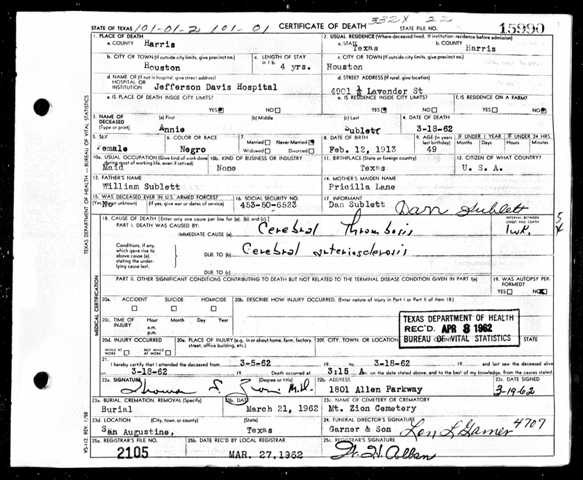 332X 22
STATE OF TEXAS 101-01-2 101-01 CERTIFICATE OF DEATH STATE FILE NO. 15990
1. PLACE OF DEATH
a. COUNTY Harris
2. USUAL RESIDENCE (Where deceased lived. If institution: residence before admission)
a. STATE Texas b. COUNTY Harris
b. CITY OR TOWN (If outside city limits, give precinct no.) Houston
c. LENGTH OF STAY in 1 b. 4 yrs.
c. CITY OR TOWN (If outside city limits, give precinct no.) Houston
d. NAME OF (If not in hospital, give street address) HOSPITAL OR INSTITUTION Jefferson Davis Hospital
d. STREET ADDRESS (If rural, give location) 4901 ½ Lavender St
e. IS PLACE OF DEATH INSIDE CITY LIMITS? YES NO
e. IS RESIDENCE INSIDE CITY LIMITS? YES NO
f. IS RESIDENCE ON A FARM? YES NO
3. NAME OF DECEASED (Type or print) (a) First Annie (b) Middle (c) Last Sublett
4. DATE OF DEATH 3-18-62
5. SEX Female
6. COLOR OR RACE Negro
7. Married Never Married Widowed Divorced
8. DATE OF BIRTH Feb. 12, 1913
9. AGE (In years last birthday) 49
IF UNDER 1 YEAR Months Days
IF UNDER 24 HRS. Hours Min.
10a. USUAL OCCUPATION (Give kind of work done during most of working life, even if retired) Maid
10b. KIND OF BUSINESS OR INDUSTRY None
11. BIRTHPLACE (State or foreign country) Texas
12. CITIZEN OF WHAT COUNTRY? U. S. A.
13. FATHER'S NAME William Sublett
14. MOTHER'S MAIDEN NAME Pricilla Lane
15. WAS DECEASED EVER IN U.S. ARMED FORCES? (Yes, no, or unknown) (If yes, give war or dates of service) No
16. SOCIAL SECURITY NO.
17. INFORMANT Dan Sublett Dan Sublett
18. CAUSE OF DEATH [Enter only one cause per line for (a), (b), and (c).]
INTERVAL BETWEEN ONSET AND DEATH
PART I. DEATH WAS CAUSED BY:
IMMEDIATE CAUSE (a) Cerebral Thrombosis 1 wk.
Conditions, if any, which gave rise to above cause (a), stating the underlying cause last.
DUE TO (b) Cerebral arteriosclerosis
DUE TO (c)
PART II. OTHER SIGNIFICANT CONDITIONS CONTRIBUTING TO DEATH BUT NOT RELATED TO THE TERMINAL DISEASE CONDITION GIVEN IN PART I(a)
19. WAS AUTOPSY PERFORMED? YES NO
20a. ACCIDENT SUICIDE HOMICIDE
20b. DESCRIBE HOW INJURY OCCURRED. (Enter nature of injury in Part I or Part II of item 18.)
20c. TIME OF INJURY Hour Month Day Year a.m. p.m.
TEXAS DEPARTMENT OF HEALTH
REC'D. APR 8 1962
BUREAU OF VITAL STATISTICS
20d. INJURY OCCURRED WHILE AT WORK NOT WHILE AT WORK
20e. PLACE OF INJURY (e.g. in or about home, farm, factory, street, office building, etc.)
20f. CITY, TOWN, OR LOCATION COUNTY STATE
21. I hereby certify that I attended the deceased from 3-5-62 19 to 3-18-62 19 and last saw the deceased alive
3-18-62 19 Death occurred at 3:15 A. m. on the date stated above, and to the best of my knowledge, from the causes stated.
22a. SIGNATURE (Degree or title) M.D.
22b. ADDRESS 1801 Allen Parkway
22c. DATE SIGNED 3-19-62
23a. BURIAL, CREMATION, REMOVAL (Specify) Burial
23b. DATE March 21, 1962
23c. NAME OF CEMETERY OR CREMATORY Mt. Zion Cemetery
23d. LOCATION (City, town, or county) (State) San Augustine, Texas
24. FUNERAL DIRECTOR'S SIGNATURE Garner & Son Len L. Garner 4707
25a. REGISTRAR'S FILE NO. 2105
25b. DATE REC'D BY LOCAL REGISTRAR MAR. 27, 1962
25c. REGISTRAR'S SIGNATURE
TEXAS DEPARTMENT OF HEALTH — BUREAU OF VITAL STATISTICS
MEDICAL CERTIFICATION